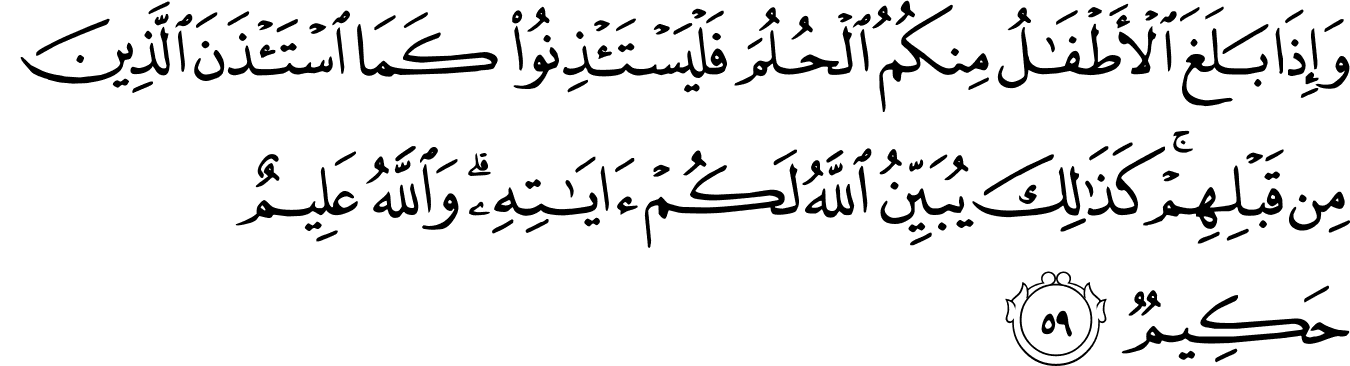 وَإِذَا بَلَغَ ٱلْأَطْفَـٰلُ مِنكُمُ ٱلْحُلُمَ فَلْيَسْتَـْٔذِنُوا۟ كَمَا ٱسْتَـْٔذَنَ ٱلَّذِينَ
مِن قَبْلِهِمْ ۚ كَذَٰلِكَ يُبَيِّنُ ٱللَّهُ لَكُمْ ءَايَـٰتِهِۦ ۗ وَٱللَّهُ عَلِيمٌ
حَكِيمٌ ٥٩